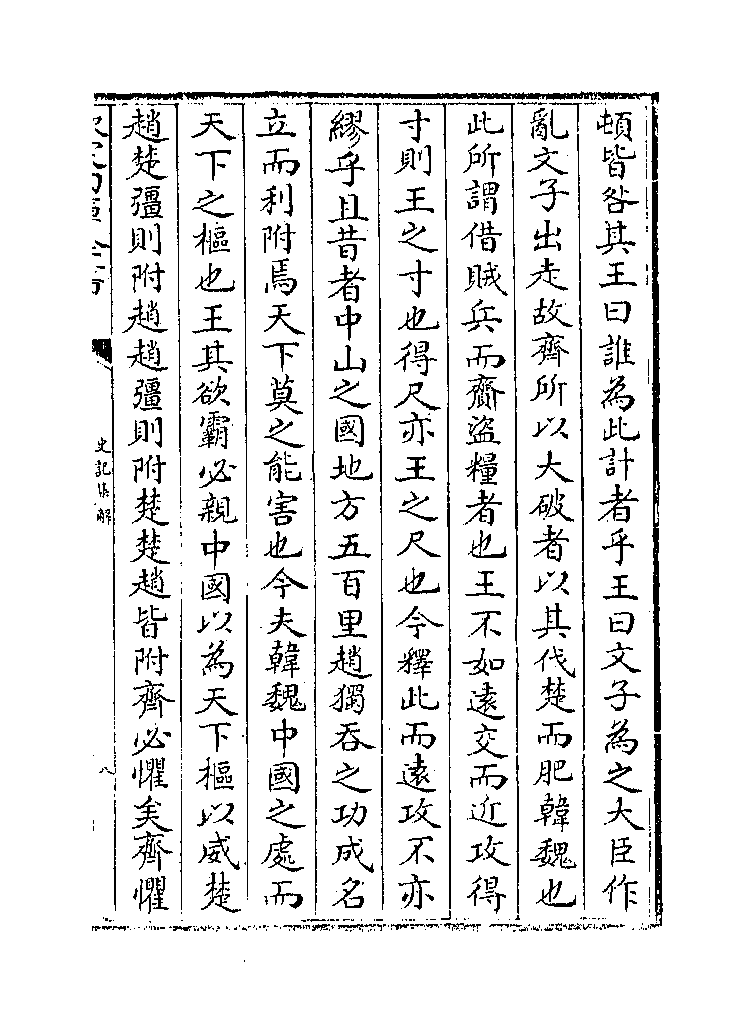 頓皆咎其王曰誰為此計者乎王曰文子為之大臣作
亂文子出走故齊所以大破者以其伐楚而肥韓魏也
此所謂借賊兵而齎盜糧者也王不如遠交而近攻得
寸則王之寸也得尺亦王之尺也今釋此而遠攻不亦
繆乎且昔者中山之國地方五百里趙獨吞之功成名
立而利附焉天下莫之能害也今夫韓魏中國之處而
天下之樞也王其欲霸必親中國以為天下樞以威楚
趙楚彊則附趙趙彊則附楚楚趙皆附齊必懼矣齊懼
史記集解
八